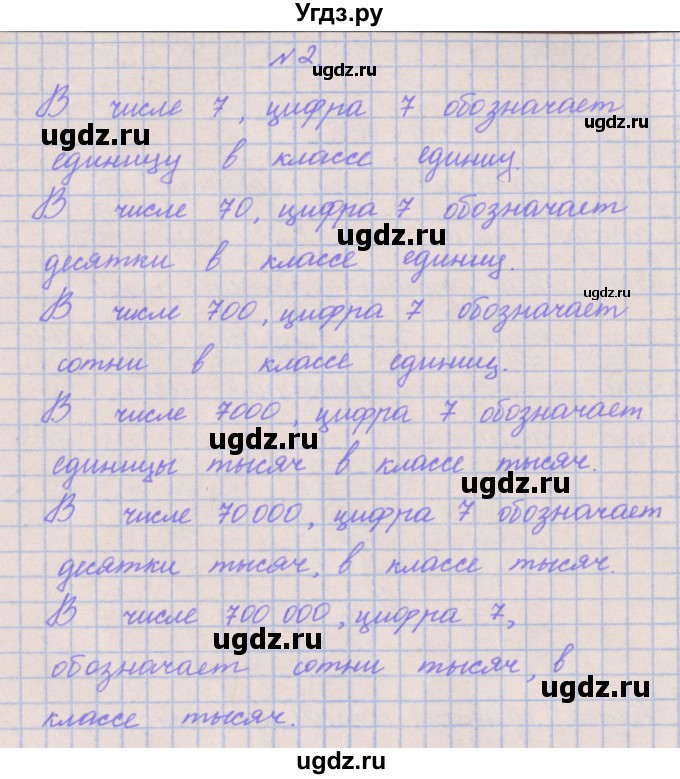 Угдз.ру
№2
ugdz.ru
В числе 7, цифра 7 обозначает
ugdz.ru
ugdz.ru
единицу в классе единиц.
В числе 70, цифра 7 обозначает
ugdz.ru
десятки в классе единиц.
ugdz.ru
В числе 700, цифра 7 обозначает
сотни в классе единиц.
В числе 7000, цифра 7 обозначает
ugdz.ru
единицы тысяч в классе тысяч.
ugdz.ru
В числе 70 000, цифра 7 обозначает
десятки тысяч, в классе тысяч.
В числе 700 000, цифра 7,
ugdz.ru
обозначает сотни тысяч, в
ugdz.ru
классе тысяч.
ugdz.ru